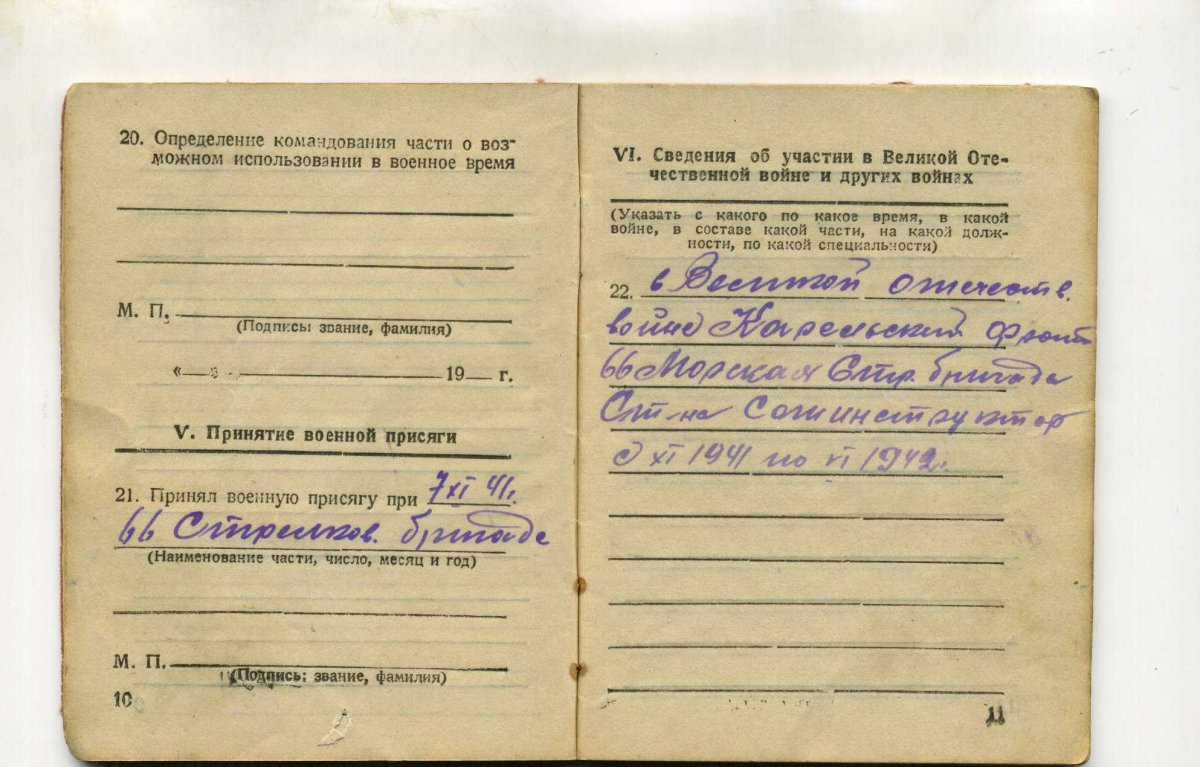 20. Определение командования части о воз-
можном использовании в военное время
М. П.
(Подписы звание, фамилия)
«—»— 19— г.
V. Принятие военной присяги
21. Принял военную присягу при 7 XI 41г.
66 Стрелков. бригаде
(Наименование части, число, месяц и год)
М. П.
(Подпись: звание, фамилия)
10
VI. Сведения об участии в Великой Оте-
чественной войне и других войнах
(Указать с какого по какое время, в какой
войне, в составе какой части, на какой долж-
ности, по какой специальности)
22. в Великой отечеств.
войне Карельский фронт
66 Морская Стр. бригада
Ст-на Санинструктор
с XI 1941 по VI 1942г.
11